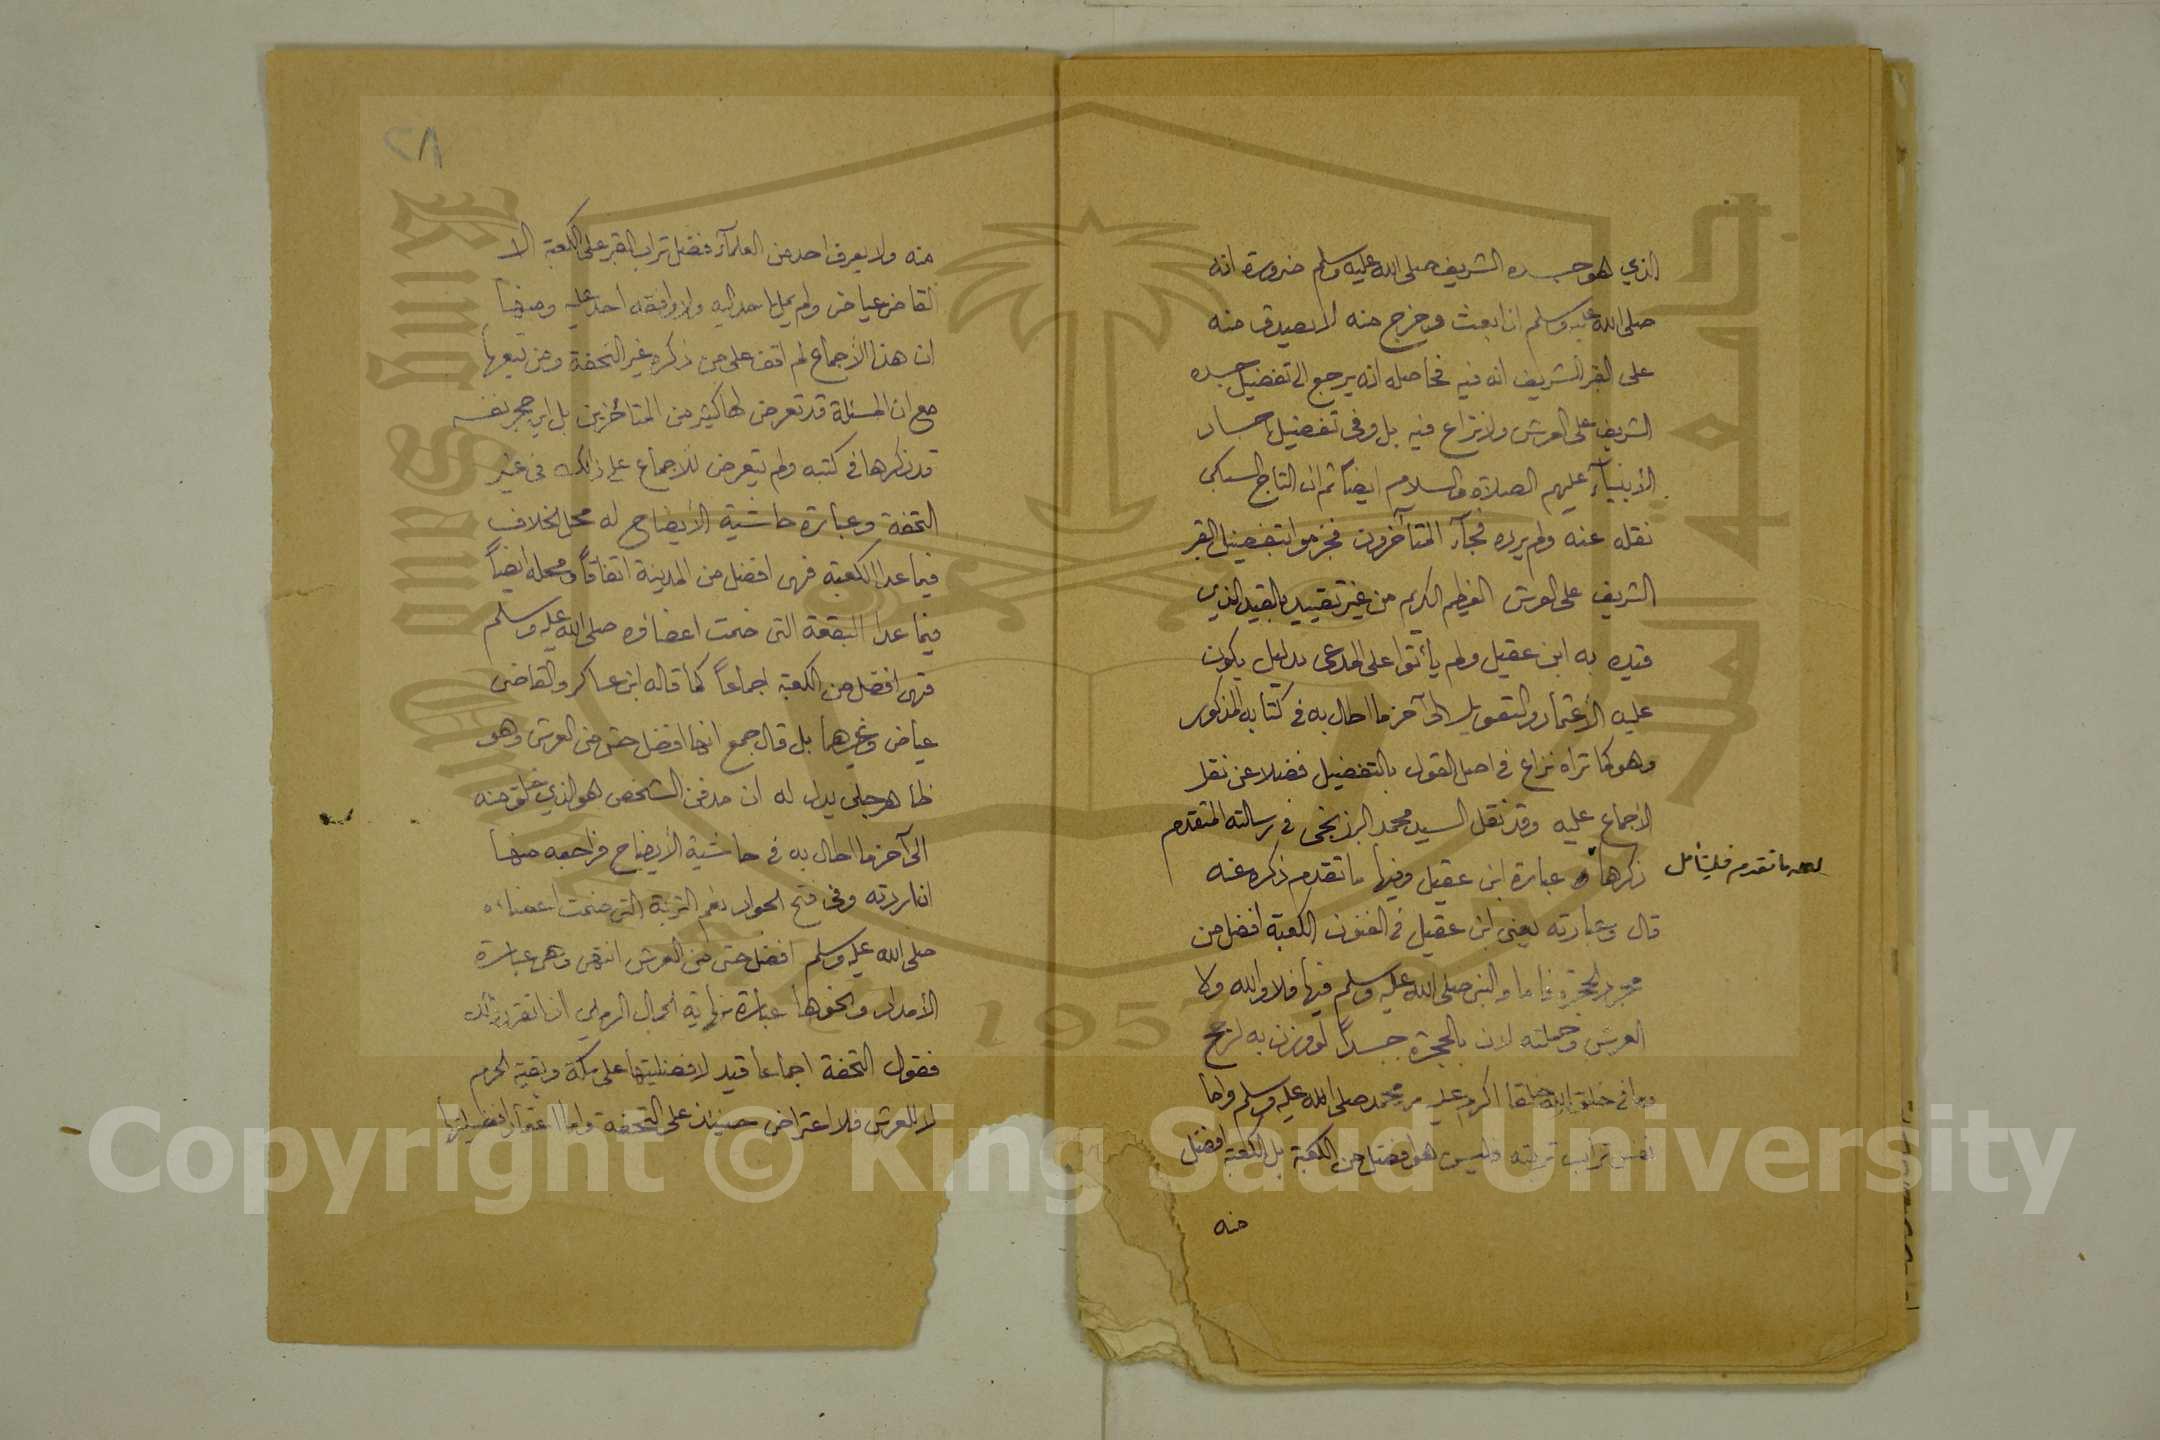 الذي هو جسده الشريف صلى الله عليه وسلم ضرورة انه
صلى الله عليه وسلم ان بعث وخرج منه لا يصدق منه
على القبر الشريف انه فيه فحاصله انه يرجع الى تفضيل جسده
الشريف على العرش ولا نزاع فيه بل وفي تفضيل اجساد
الأنبيآء عليهم الصلاة والسلام ايضا ثم ان التاج السبكي
نقله عنه ولم يرده فجآء المتأخرون فجزموا بتفضيل القبر
الشريف على العرش العظيم الكريم من غير تقييد بالقيد الذي
قيده به ابن عقيل ولم يأتوا على المدعى بدليل يكون
عليه الأعتماد والتعويل الى آخر ما اطال به في كتابه المذكور
وهو كما تراه نزاع في اصل القول بالتفضيل فضلا عن نقل
الاجماع عليه وقد نقل السيد محمد البرزنجي في رسالته المتقدم
ذكرها عبارة ابن عقيل وفيها ما تقدم ذكره عنه
ما تقدم فليتأمل
قال وعبارته يعني ابن عقيل في الفنون الكعبة افضل من
مجرد الحجرة فاما والنبي صلى الله عليه وسلم فيها فلا والله ولا
العرش وحملته لان بالحجرة جسداً لو وزن به لرجح
وما في خلق الله خلقا اكرم عليه من محمد صلى الله عليه وسلم واما
نفس تراب تربته فليس هو افضل من الكعبة بل الكعبة افضل
منه
٢٨
منه ولا يعرف احد من العلمآء فضل تراب القبر على الكعبة الا
القاضي عياض ولم يمل احد اليه ولا وافقه احد عليه وصنيها
ان هذا الأجماع لم اقف على من ذكره غير التحفة ومن تبعها
مع ان المسئلة قد تعرض لها كثير من المتأخرين بل ابن حجر نفسه
قد ذكرها في كتبه ولم يتعرض للاجماع على ذلك في غير
التحفة وعبارة حاشية الأيضاح له محل الخلاف
فيما عدا الكعبة فهي افضل من المدينة اتفاقاً ومحله ايضاً
فيما عدا البقعة التي ضمت اعضاؤه صلى الله عليه وسلم
فهي افضل من الكعبة اجماعاً كما قاله ابن عساكر والقاضي
عياض وغيرهما بل قال جمع انها افضل حتى من العرش وهو
ظاهر جلي يدل له ان مدفن الشخص هو الذي خلق منه
الى آخر ما اطال به في حاشية الأيضاح فراجعه منها
ان اردته وفي فتح الجواد نعم التربة التي ضمت اعضاءه
صلى الله عليه وسلم افضل حتى من العرش انتهى وهي عبارة
الأمداد ونحوها عبارة نهاية الجمال الرملي اذا تقرر ذلك
فقول التحفة اجماعا قيد لافضليتها على مكة وبقية الحرم
لا للعرش فلا اعتراض حينئذ على التحفة واما افضليتها